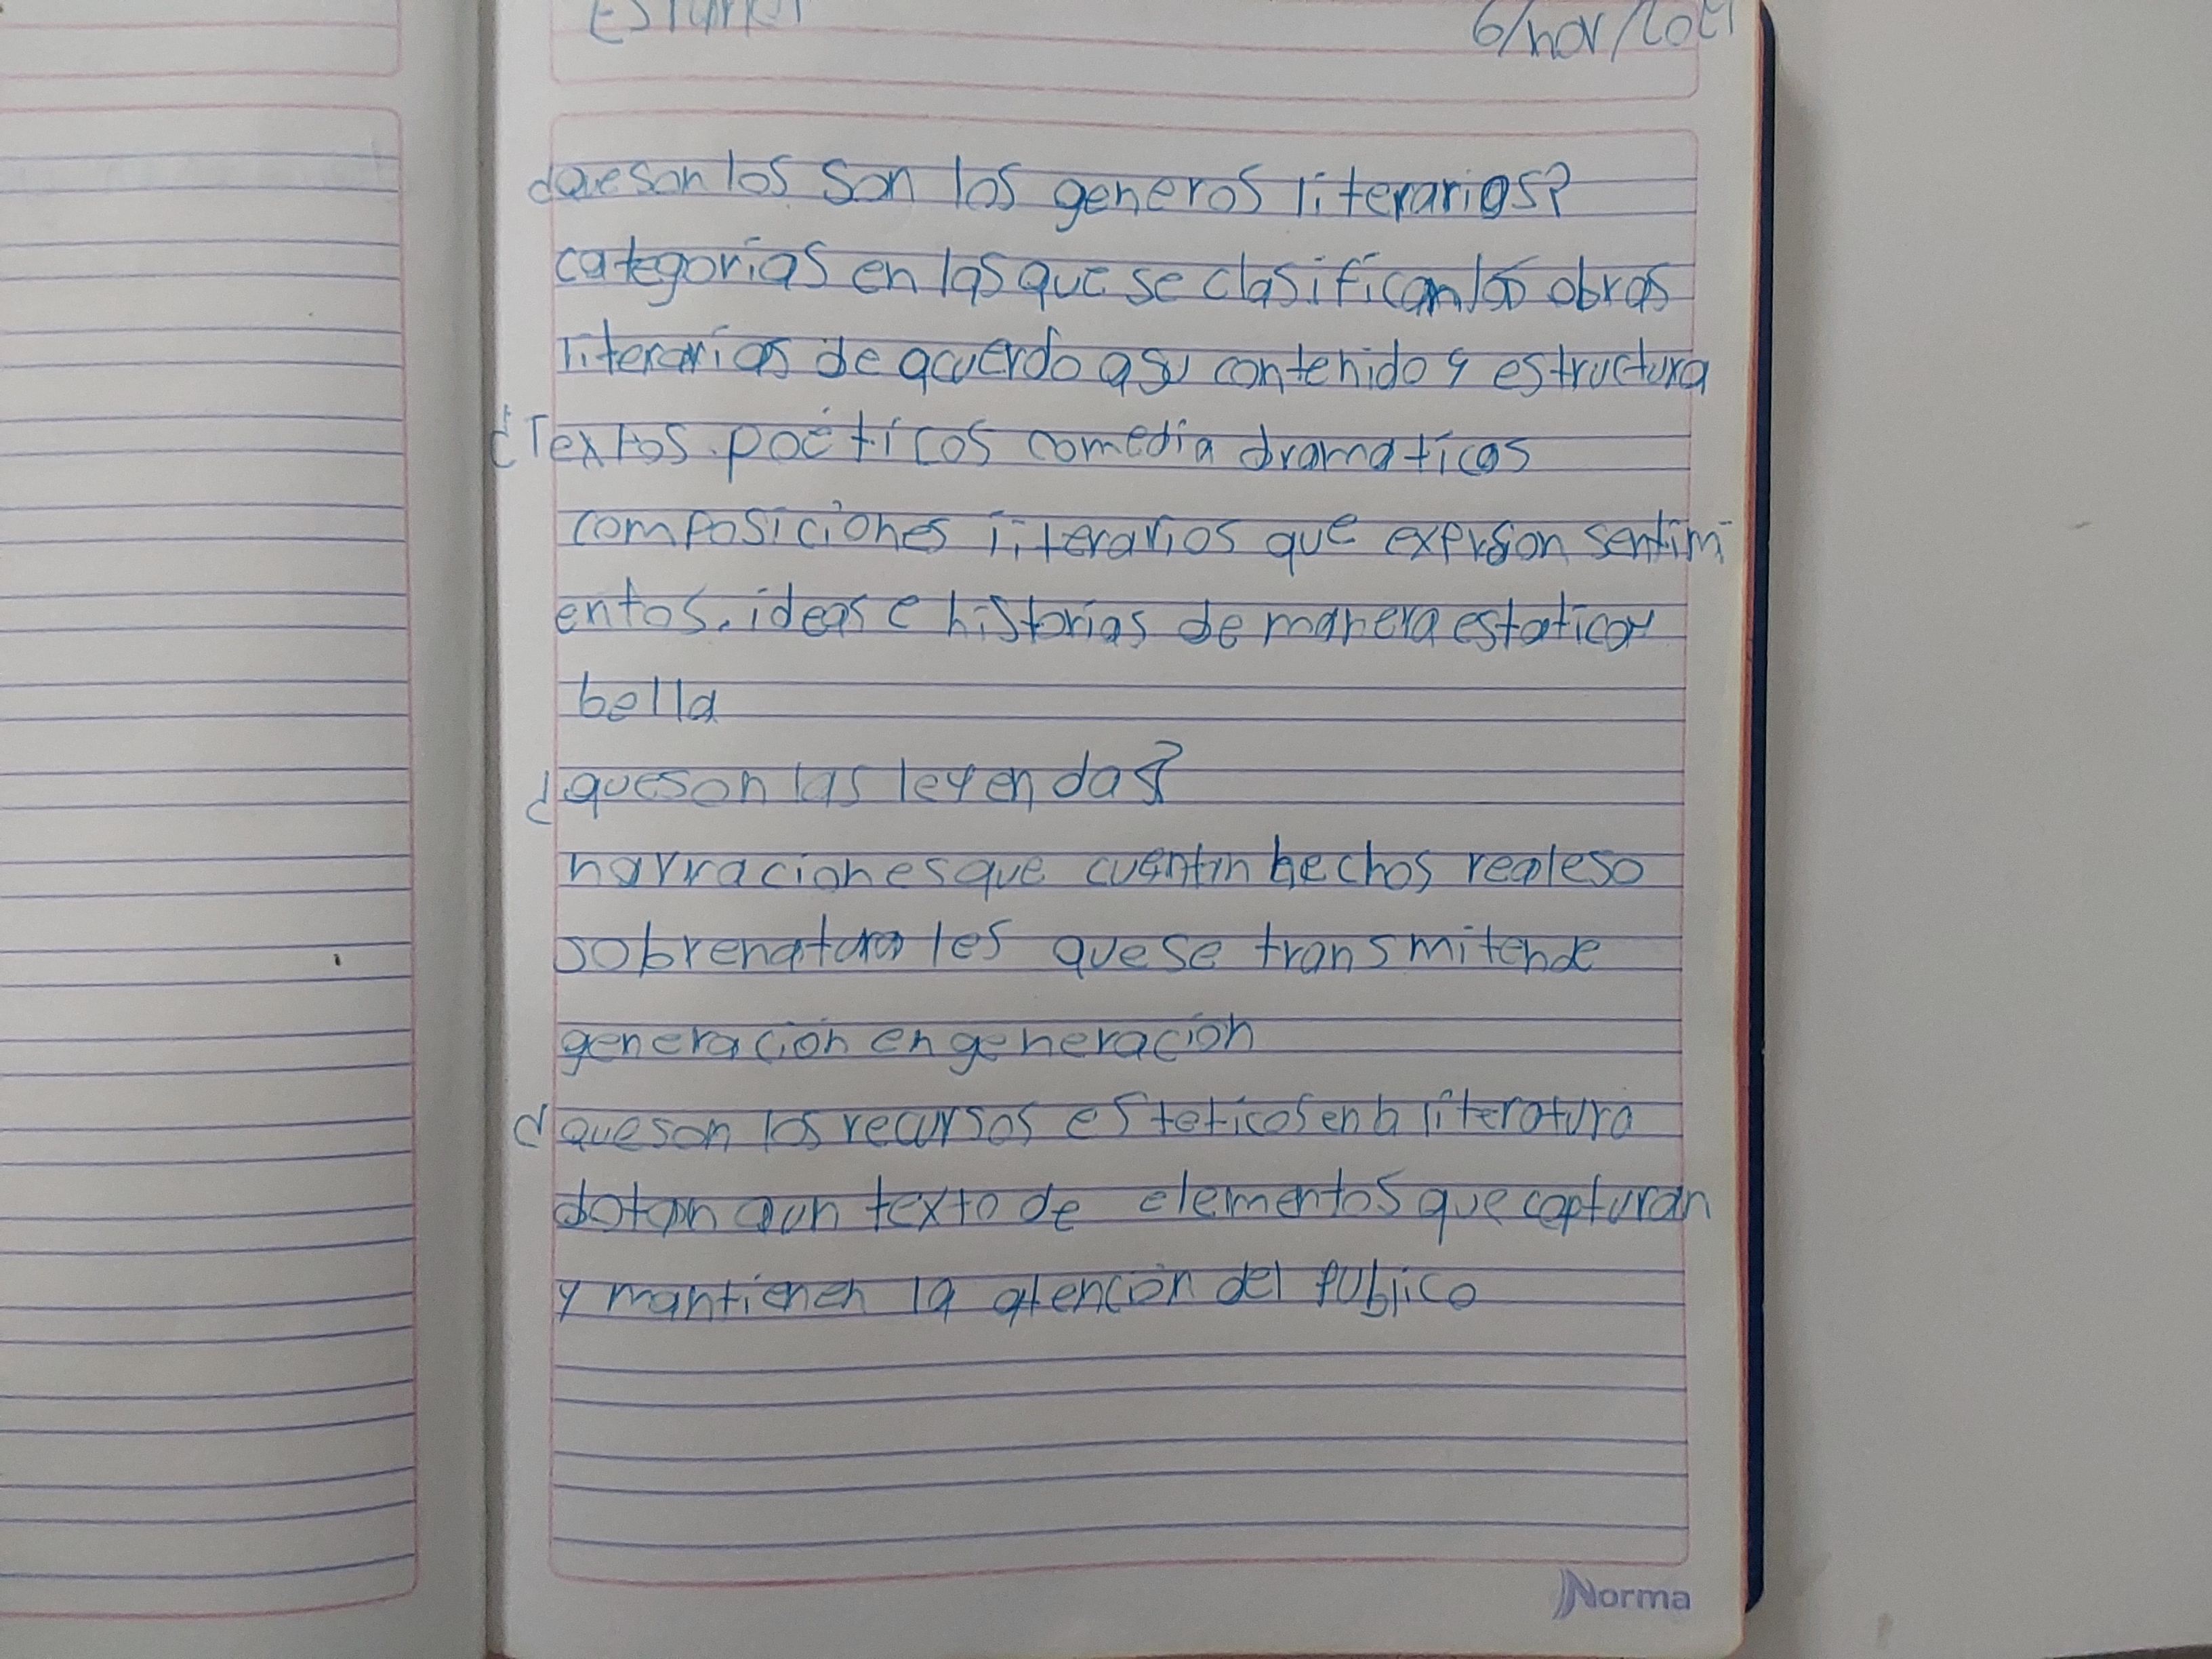 6/nov/
¿que son los son los generos literarios?
categorías en las que se clasifican las obras
literarias de acuerdo a su contenido y estructura
¿Textos poéticos comedia dramaticas
composiciones literarios que expreson sentim
entos, ideas e historias de manera estatica y
bella
¿que son las leyendas?
narraciones que cuentan hechos reales o
sobrenaturales que se transmiten de
generación en generación
¿que son los recursos esteticos en la literatura
dotan a un texto de elementos que capturan
y mantienen la atención del publico
Norma